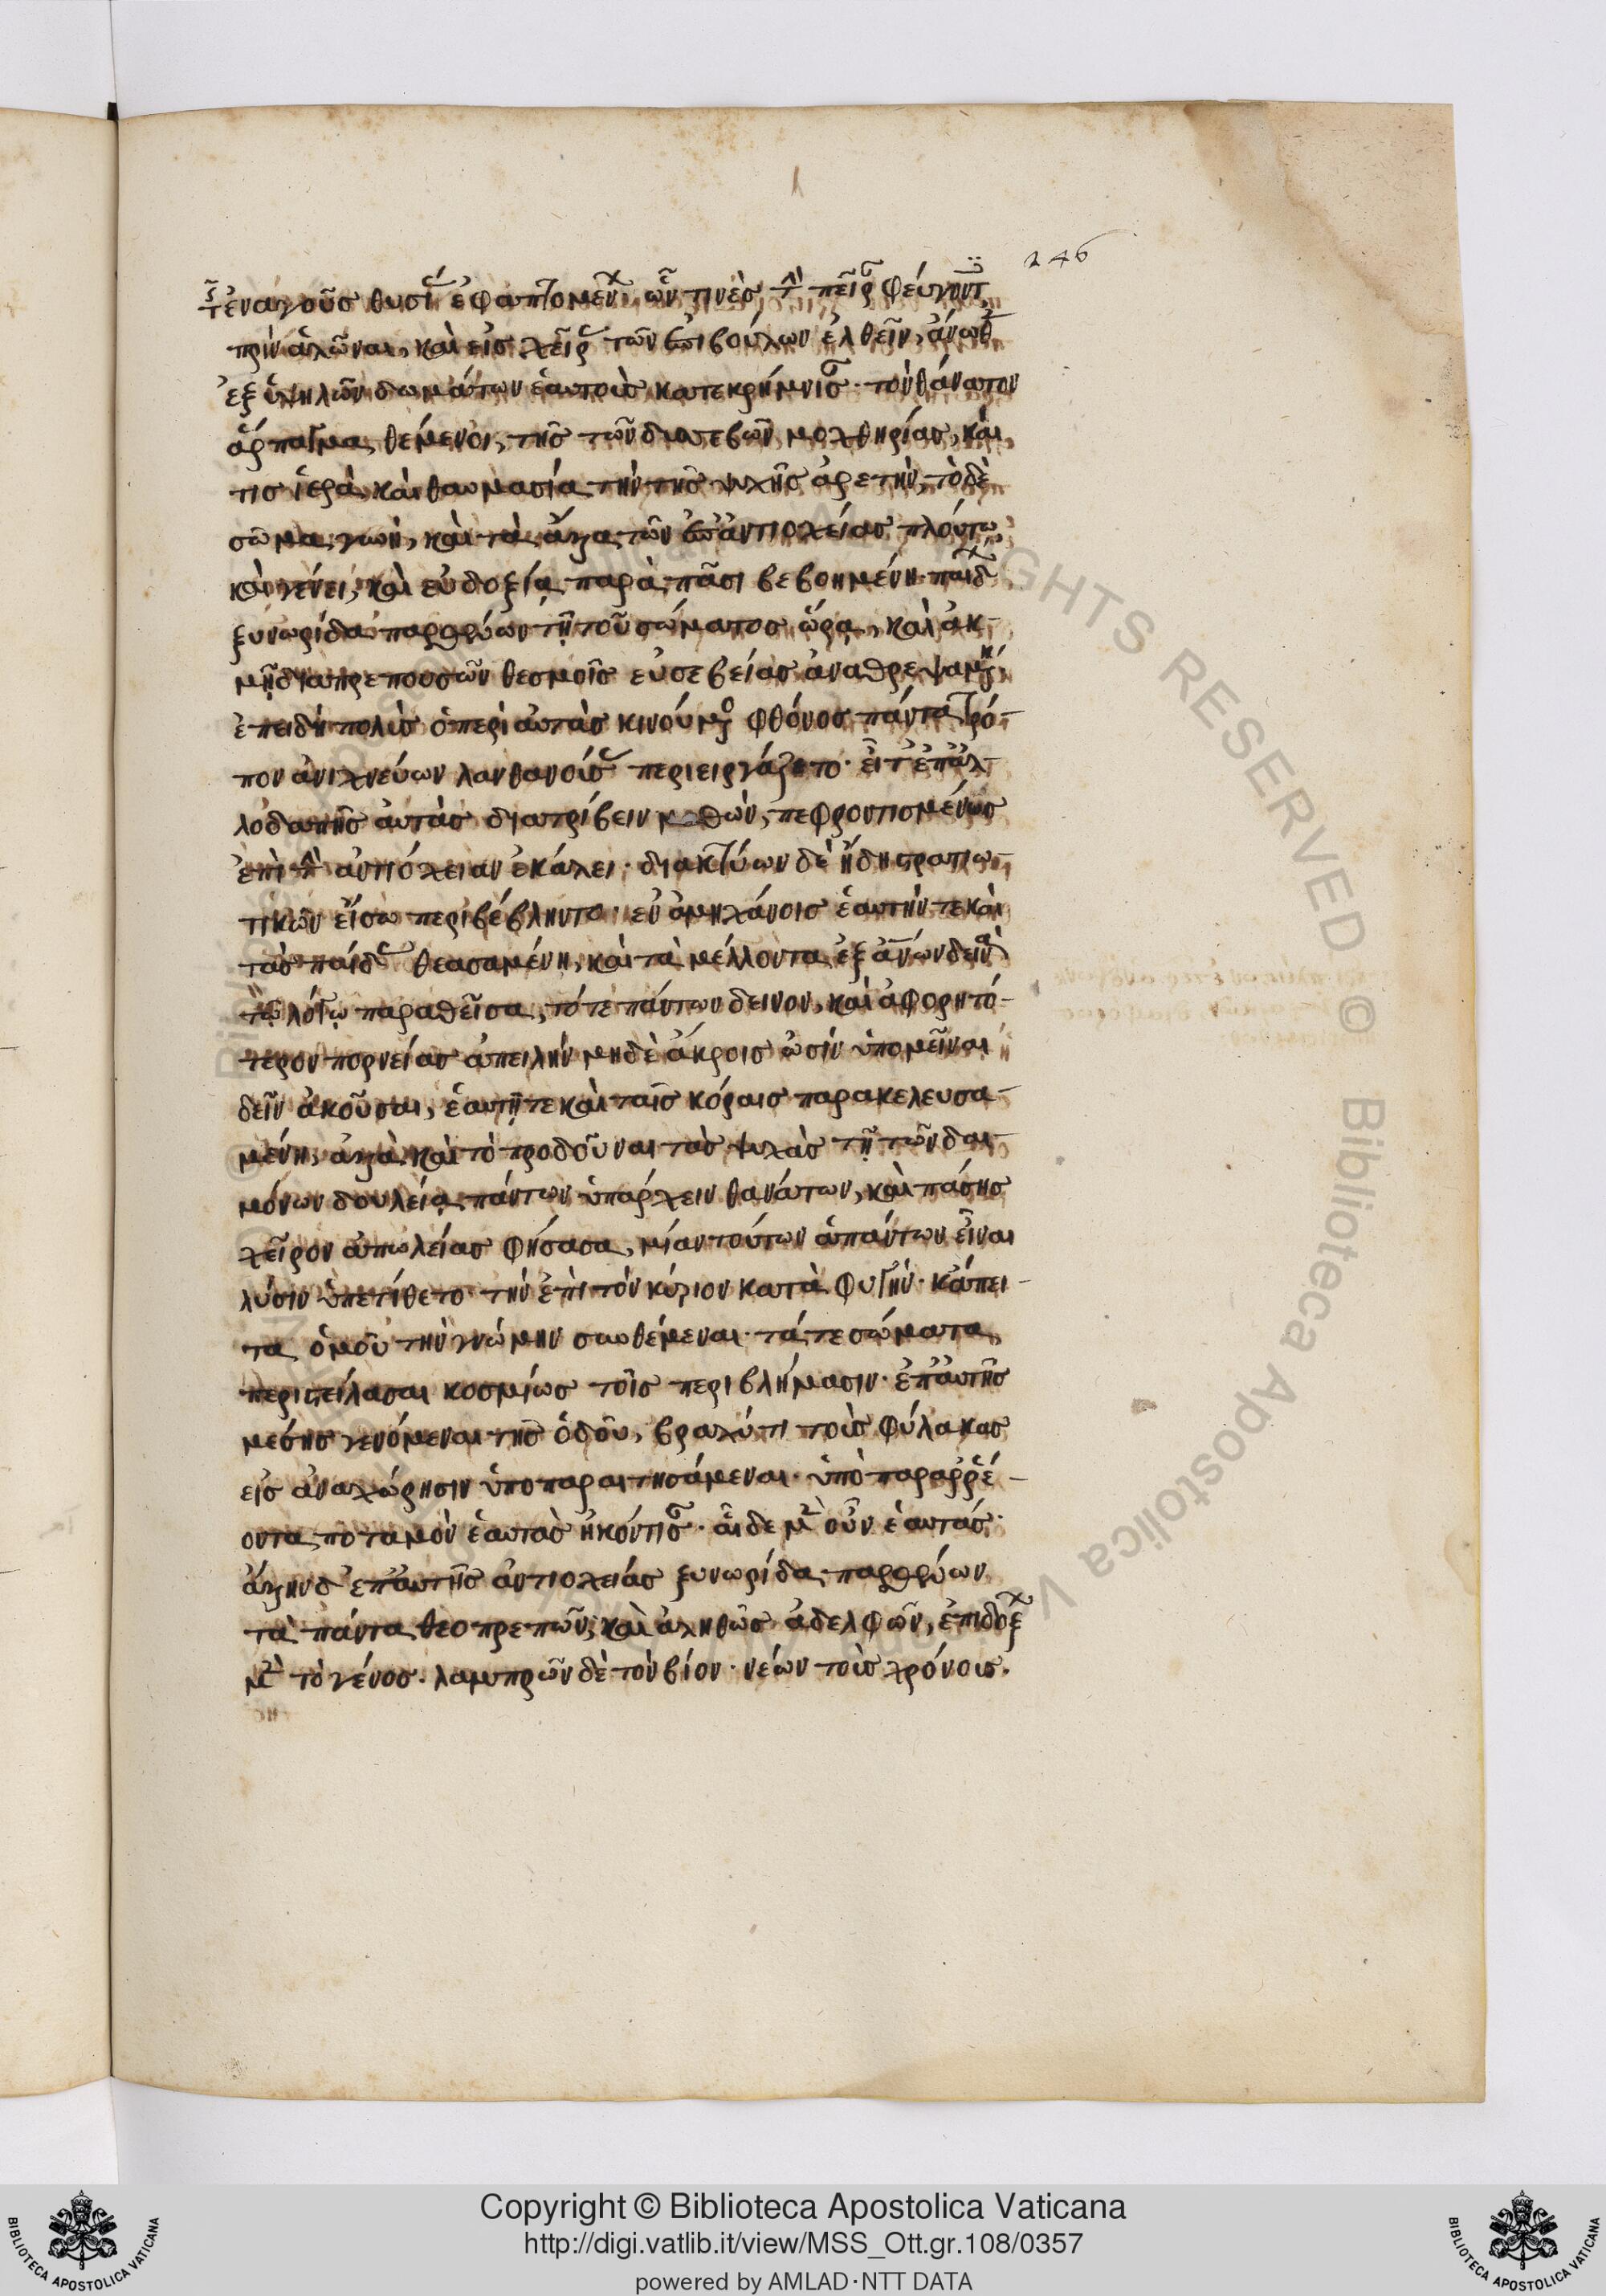 246
τῆς ἐναγοῦς θυσίας ἐφαπτομένων ὧν τινὲς τὴν πεῖραν φεύγοντες
πρὶν ἁλῶναι, καὶ εἰς χεῖρας τῶν ἐπιβούλων ἐλθεῖν, ἄνωθεν
ἐξ ὑψηλῶν δωμάτων ἑαυτοὺς κατεκρήμνισαν. τὸν θάνατον
ἅρπαγμα θέμενοι, τῆς τῶν δυσσεβῶν μοχθηρίας, καί
τις ἱερὰ, καὶ θαυμασία τὴν τῆς ψυχῆς ἀρετὴν, τὸ δὲ
σῶμα γυνὴ, καὶ τὰ ἄλλα τῶν ἐπ' ἀντιοχείας πλούτω
καὶ γένει, καὶ εὐδοξία παρὰ πᾶσι βεβοημένη. παίδων
ξυνωρίδα παρθένων τῇ τοῦ σώματος ὥρᾳ, καὶ ἀκ-
μῇ διαπρεπουσῶν θεσμοῖς εὐσεβείας ἀναθρεψαμένη
ἐπειδὴ πολὺς ὁ περὶ αὐτὰς κινούμενος φθόνος πάντα τρό-
πον ἀνιχνεύων λανθανούσας περιειργάζετο. εἶτ' ἐπ' ἀλ-
λοδαπῆς αὐτὰς διατρίβειν μαθὼν, πεφροντισμένως
ἐπὶ τὴν ἀντιόχειαν ἐκάλει. δικτύων δὲ ἤδη στρατιω-
τικῶν εἴσω περιβέβληντο. ἐν ἀμηχάνοις ἑαυτὴν τε καὶ
τὰς παίδας θεασαμένη, καὶ τὰ μέλλοντα ἐξ ἀνθρώπων δεινὰ
τῷ λόγῳ παραθεῖσα, τό τε πάντων δεινὸν, καὶ ἀφορητό-
τερον πορνείας ἀπειλὴν μηδὲ ἄκροις ὠσὶν ὑπομεῖναι
δεῖν ἀκοῦσαι, ἑαυτῇ τε καὶ ταῖς κόραις παρακελευσα-
μένη, ἀλλὰ καὶ τὸ προδοῦναι τὰς ψυχὰς τῇ τῶν δαι-
μόνων δουλείᾳ πάντων ὑπάρχειν θανάτων, καὶ πάσης
χεῖρον ἀπωλείας φήσασα, μίαν τούτων ἁπάντων εἶναι
λύσιν ὑπετίθετο τὴν ἐπὶ τὸν κύριον καταφυγήν. κἄπει-
τα ὁμοῦ τὴν γνώμην συνθέμεναι. τά τε σώματα
περιστείλασαι κοσμίως τοῖς περιβλήμασιν. ἐπ' αὐτῆς
μέσης γενόμεναι τῆς ὁδοῦ, βραχύ τι τοὺς φύλακας
εἰς ἀναχώρησιν ὑποπαραιτησάμεναι. ὑπὸ παραῤῥέ-
οντα ποταμὸν ἑαυτὰς ἠκόντισαν. αἵδε μὲν οὖν ἑαυτάς.
ἄλλην δ' ἐπ' αὐτῆς ἀντιοχείας ξυνωρίδα παρθένων
τὰ πάντα θεοπρεπῶν, καὶ ἀληθῶς ἀδελφῶν, ἐπιδόξων
μὲν τὸ γένος. λαμπρῶν δὲ τὸν βίον. νέων τοὺς χρόνους.
Copyright © Biblioteca Apostolica Vaticana
http://digi.vatlib.it/view/MSS_Ott.gr.108/0357
powered by AMLAD·NTT DATA